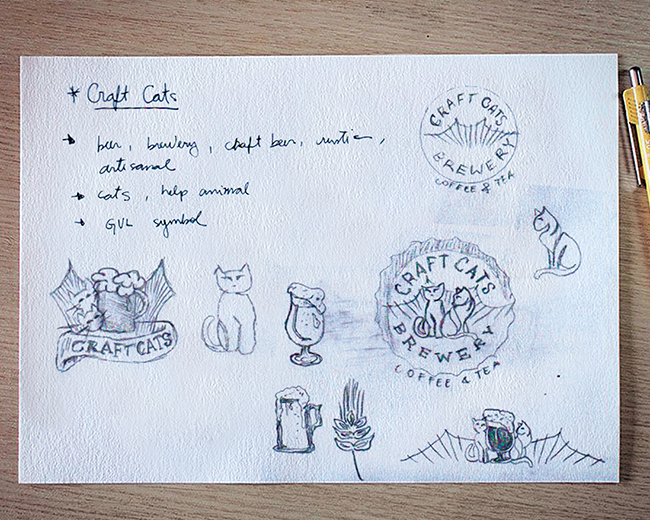 * Craft Cats
beer, brewery, craft beer, rustic,
artisanal
cats, help animal
GVL symbol
CRAFT CATS
BREWERY
COFFEE & TEA
CRAFT CATS
CRAFT CATS
BREWERY
COFFEE & TEA